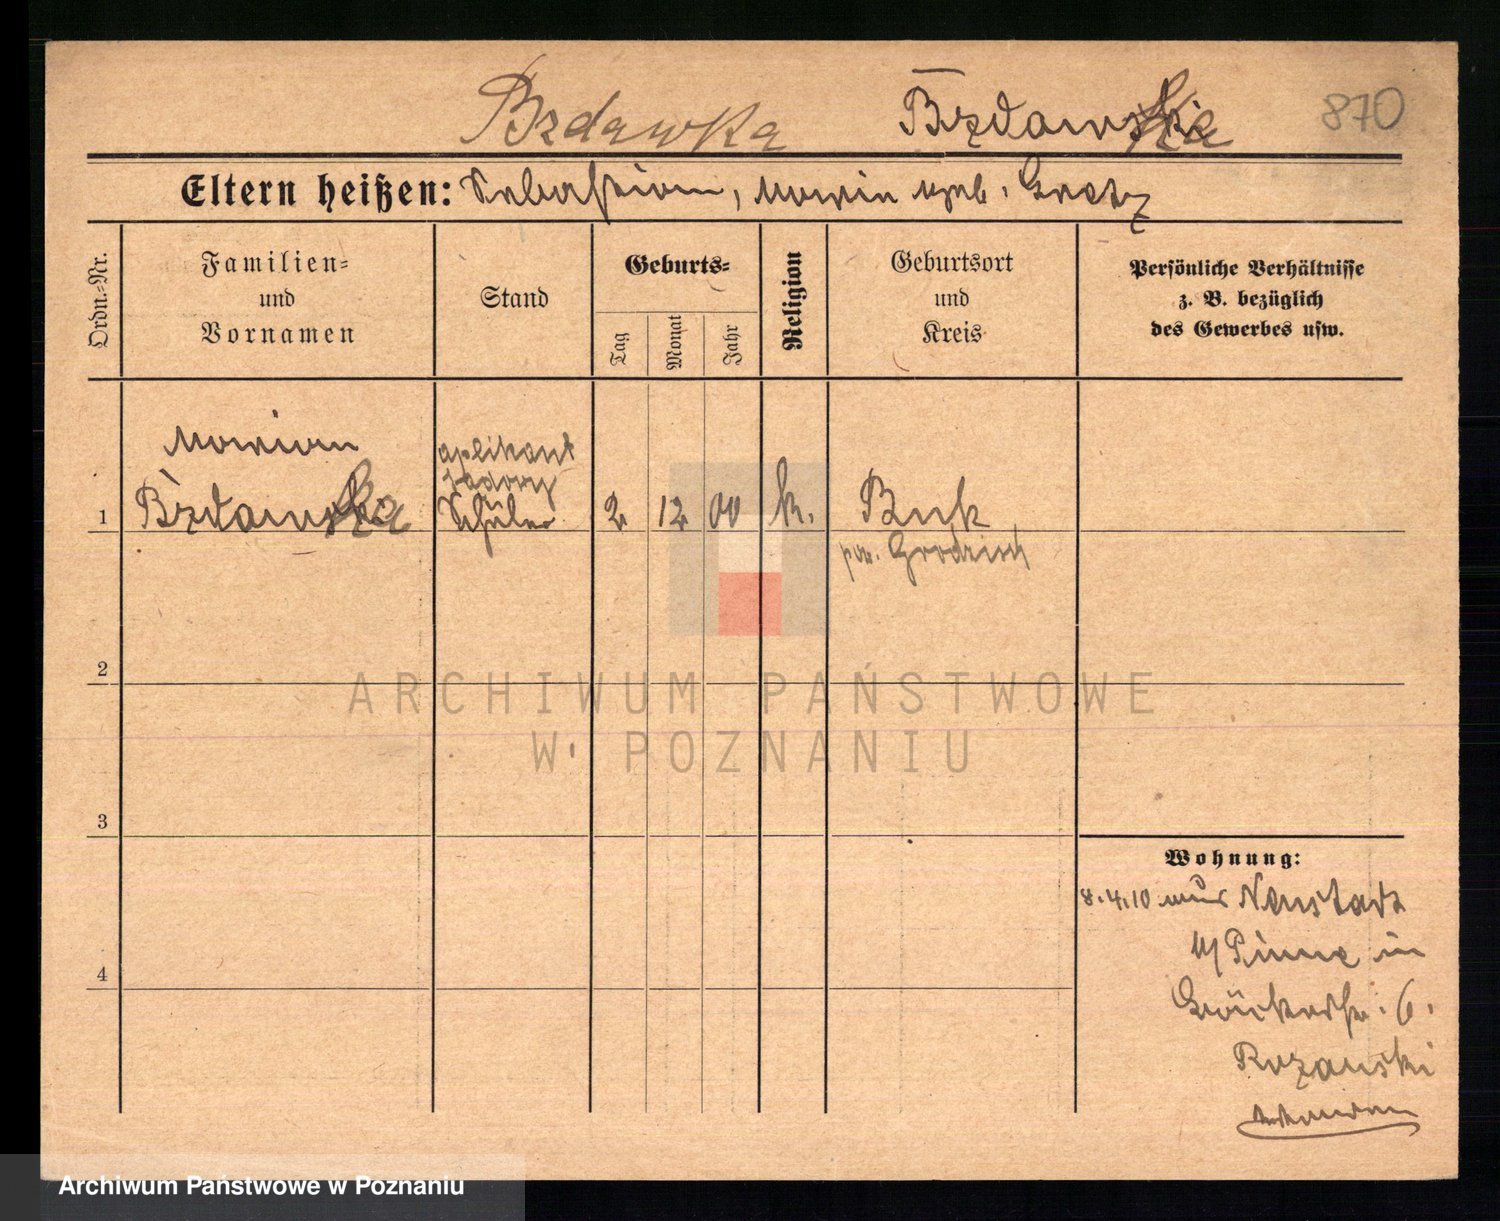 Bzdawka Bzdawska 870
Eltern heißen: Sebastian, Maria geb. Gratz
Ordn.=Nr.
Familien=
und
Vornamen
Stand
Geburts=
Tag
Monat
Jahr
Religion
Geburtsort
und
Kreis
Persönliche Verhältnisse
z. B. bezüglich
des Gewerbes usw.
Marian
aplikant
sądowy
1 Bzdawka Schüler 2 12 00 k. Buk
pow. Grodzisk
2
ARCHIWUM PAŃSTWOWE
W POZNANIU
3
Wohnung:
8.4.10 aus Neustadt
b/ Pinne in
6.
4
Rozanski
Archiwum Państwowe w Poznaniu